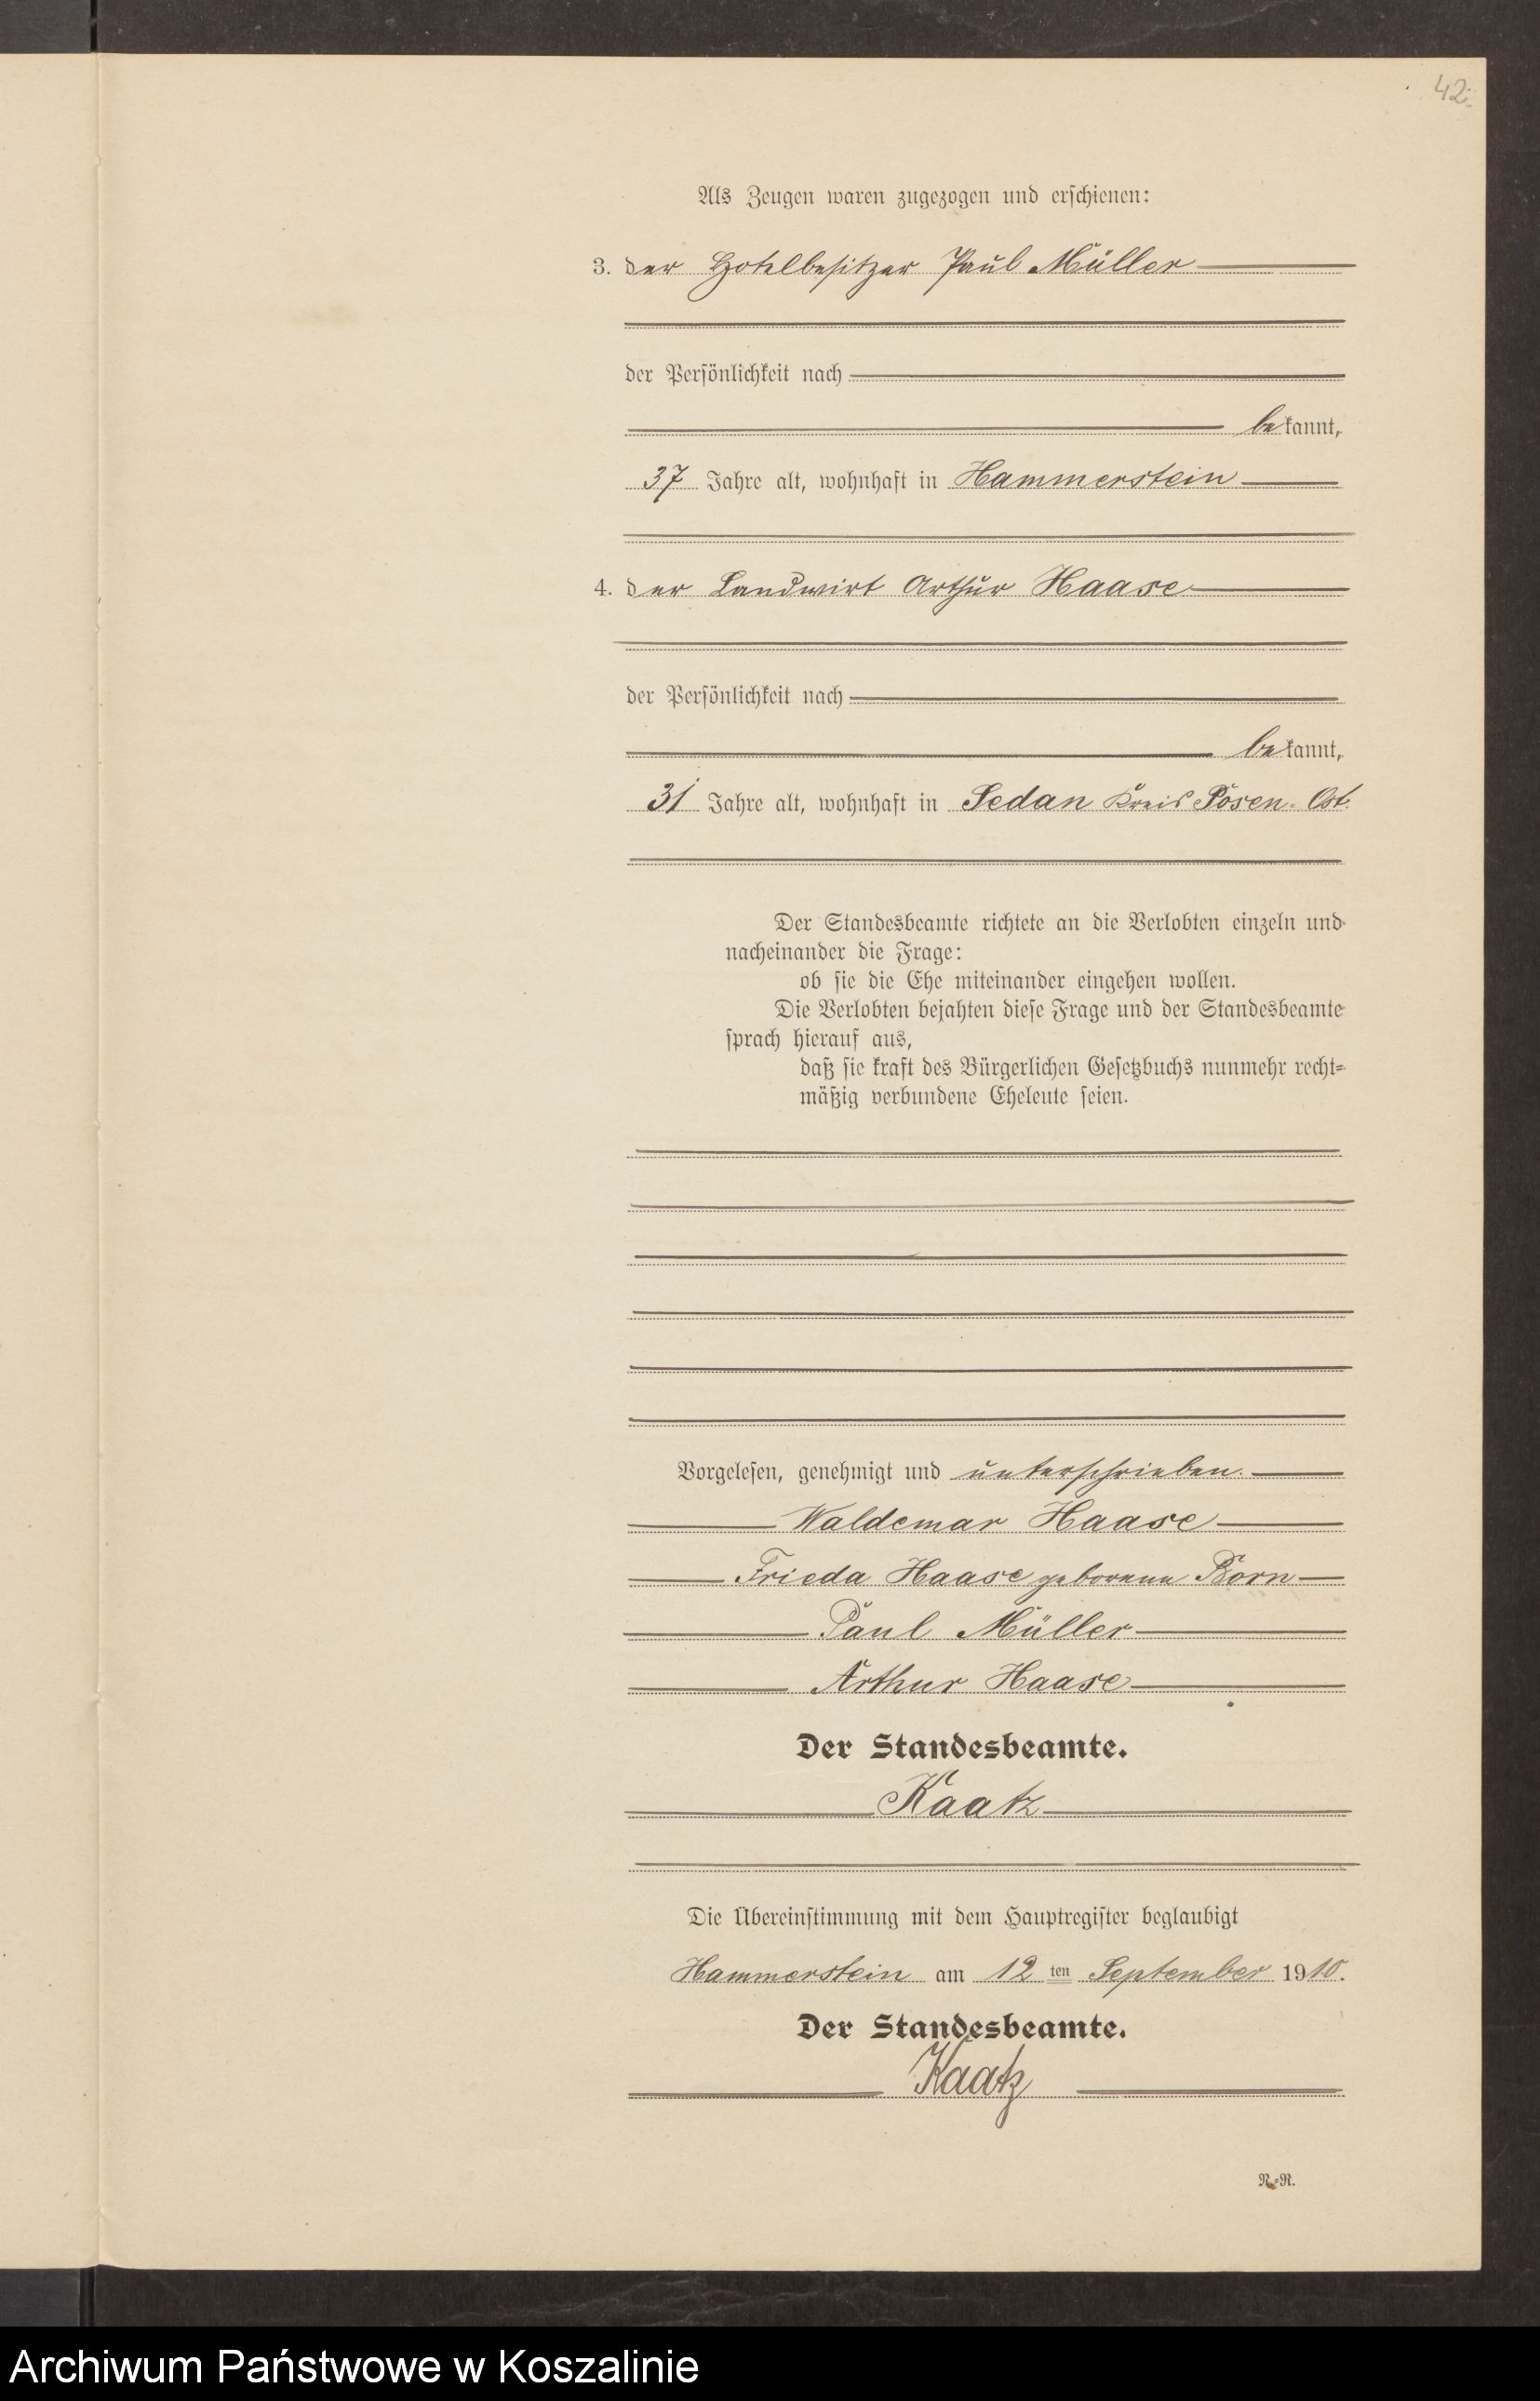 42.
Als Zeugen waren zugezogen und erschienen:
3. der Hotelbesitzer Paul Müller
der Persönlichkeit nach
bekannt,
37 Jahre alt, wohnhaft in Hammerstein
4. der Landwirt Arthur Haase
der Persönlichkeit nach
bekannt,
31 Jahre alt, wohnhaft in Sedan Kreis Posen-Ost.
Der Standesbeamte richtete an die Verlobten einzeln und
nacheinander die Frage:
ob sie die Ehe miteinander eingehen wollen.
Die Verlobten bejahten diese Frage und der Standesbeamte
sprach hierauf aus,
daß sie kraft des Bürgerlichen Gesetzbuchs nunmehr recht-
mäßig verbundene Eheleute seien.
Vorgelesen, genehmigt und unterschrieben.
Waldemar Haase
Frieda Haase geborene Born
Paul Müller
Arthur Haase
Der Standesbeamte.
Kaatz
Die Übereinstimmung mit dem Hauptregister beglaubigt
Hammerstein am 12 ten September 1910.
Der Standesbeamte.
Kaatz
N.-R.
Archiwum Państwowe w Koszalinie